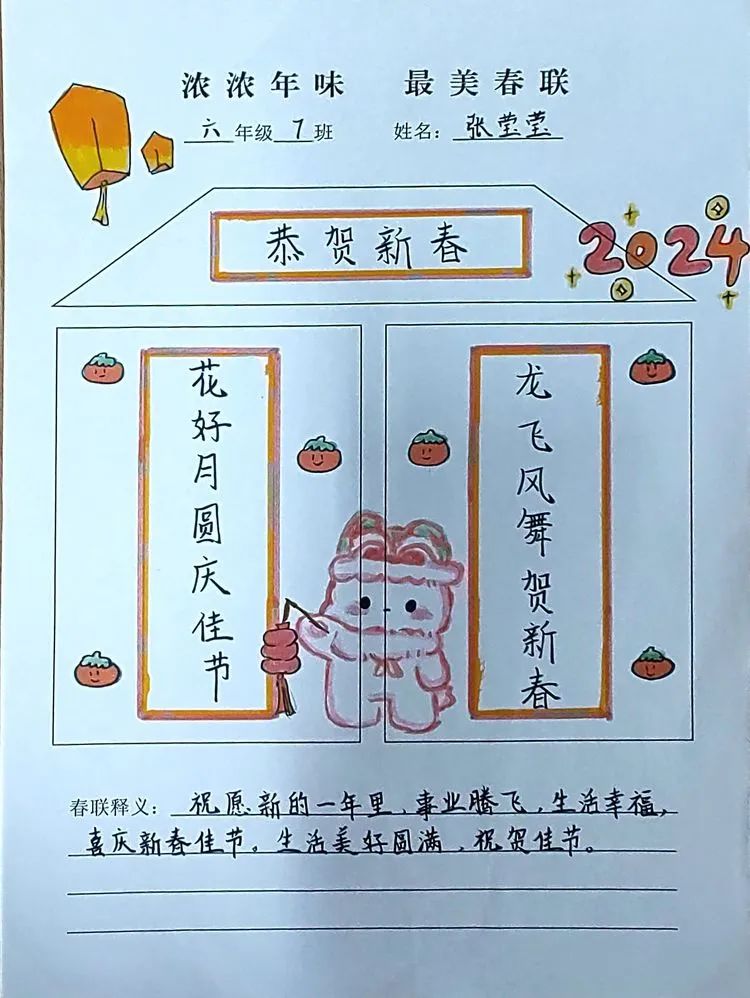 浓浓年味 最美春联
六年级7班 姓名：张莹莹
恭贺新春
2024
龙飞风舞贺新春
花好月圆庆佳节
春联释义：祝愿新的一年里、事业腾飞，生活幸福，
喜庆新春佳节。生活美好圆满、祝贺佳节。